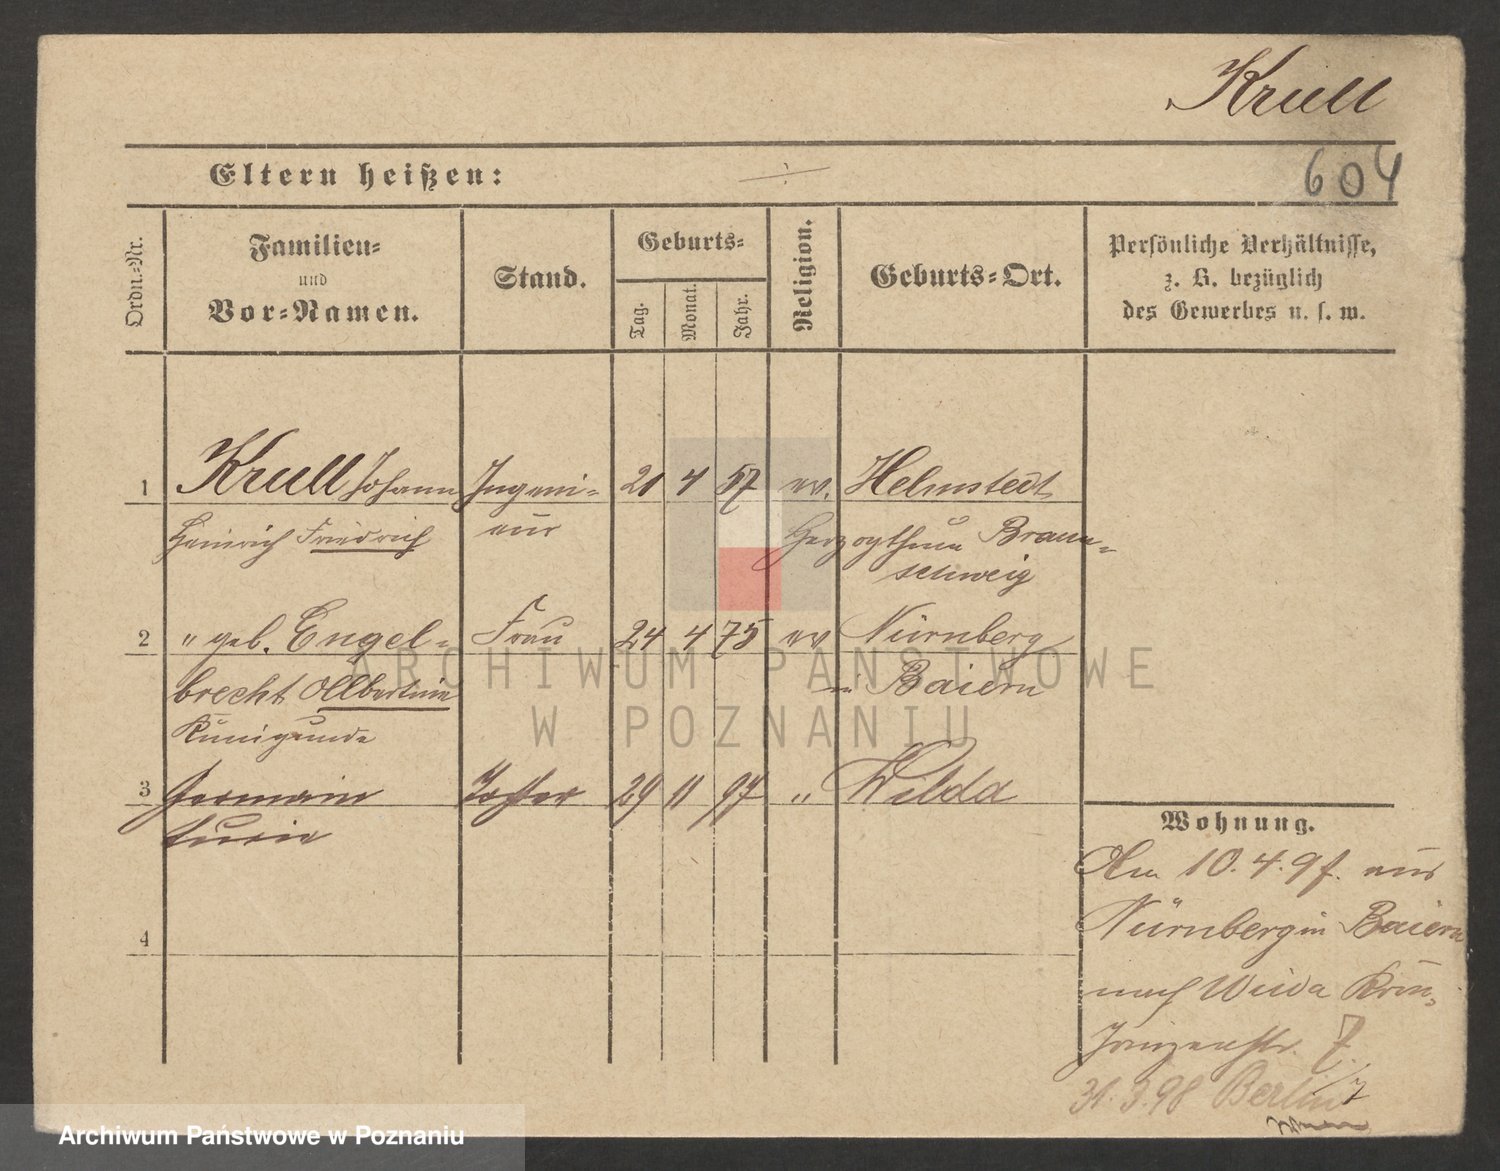 Krull
604
Eltern heißen: ÷
Ordn.=Nr.
Familien=
und
Vor=Namen.
Stand.
Geburts=
Tag.
Monat.
Jahr.
Religion.
Geburts=Ort.
Persönliche Verhältnisse,
z. B. bezüglich
des Gewerbes u. s. w.
1 Krull Johann Ingeni= 21 4 57 ev. Helmstedt
Heinrich Friedrich eur Herzogthum Braun=
schweig
2 " geb. Engel= Frau 24 4 75 ev Nürnberg
brecht Albertine in Baiern
Kunigunde
3 Germaine Tochter 29 11 97 " Wilda
Luise
4
Wohnung.
Am 10.4.97. aus
Nürnberg in Baiern
nach Wilda Kron=
prinzenstr. 7.
31.3.98 Berlin
ARCHIWUM PAŃSTWOWE
W POZNANIU
Archiwum Państwowe w Poznaniu